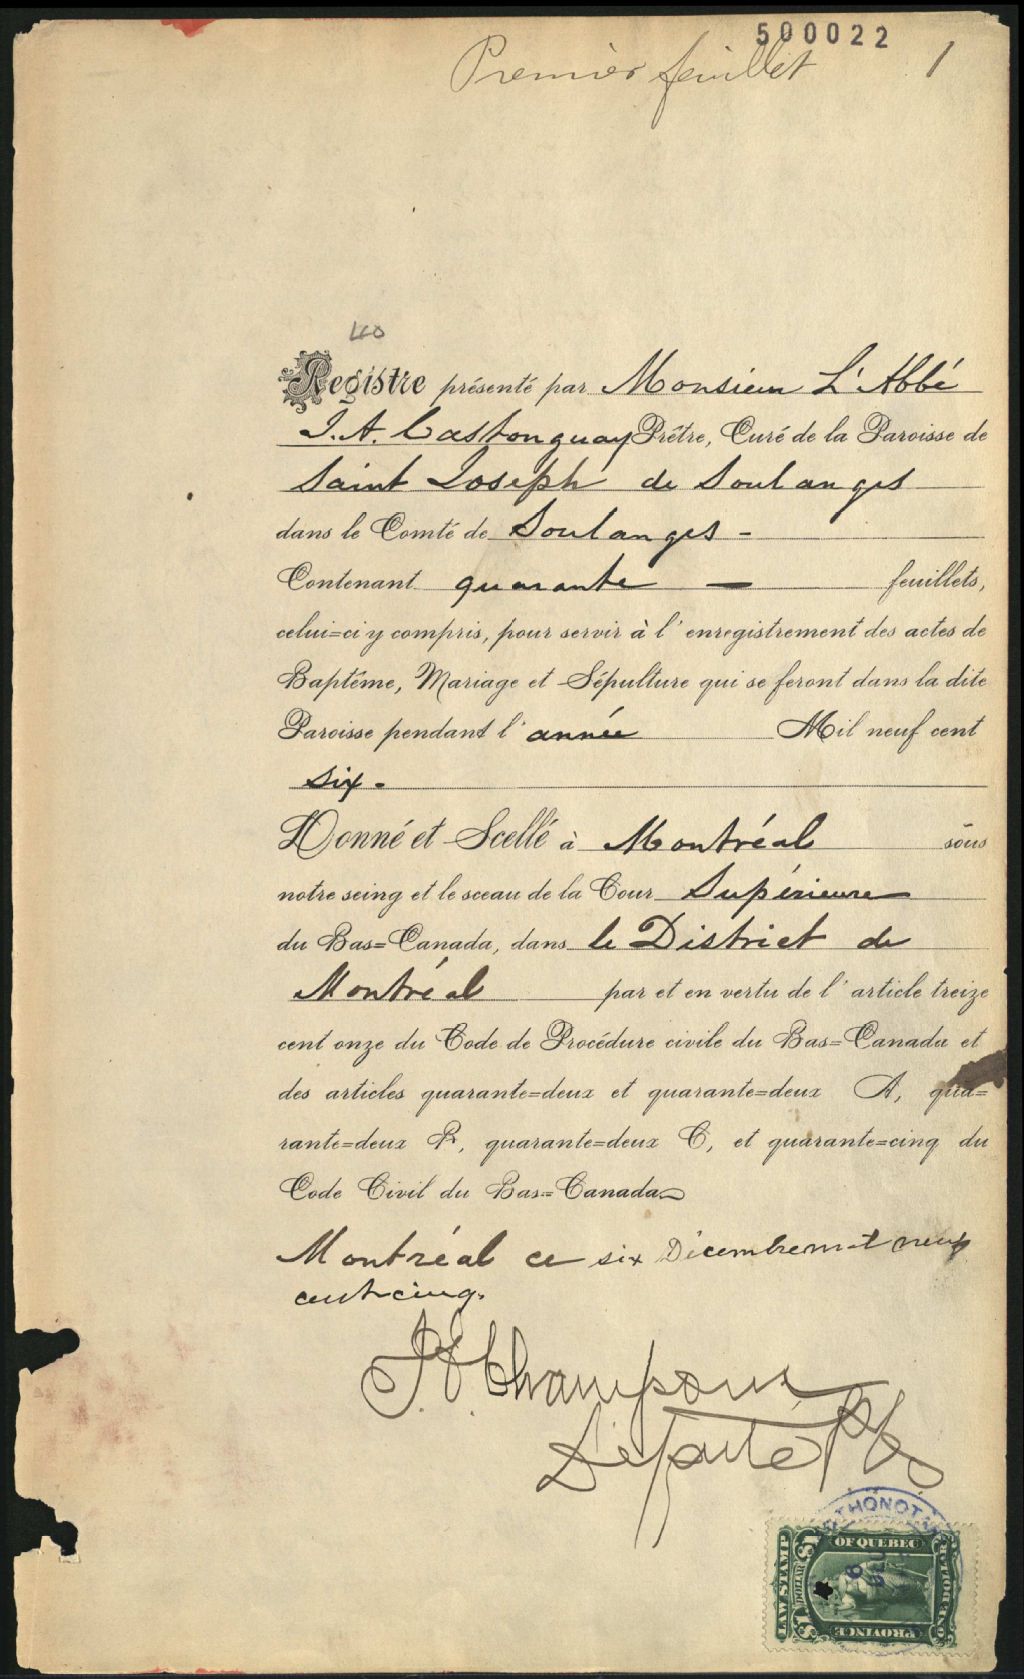 500022
Premier feuillet 1
40
Registre présenté par Monsieur L'Abbé
J. A. Castonguay Prêtre, Curé de la Paroisse de
Saint Joseph de Soulanges
dans le Comté de Soulanges -
Contenant quarante — feuillets,
celui=ci y compris, pour servir à l'enregistrement des actes de
Baptême, Mariage et Sépulture qui se feront dans la dite
Paroisse pendant l'année Mil neuf cent
six -
Donné et Scellé à Montréal sous
notre seing et le sceau de la Cour Supérieure
du Bas=Canada, dans le District de
Montréal par et en vertu de l'article treize
cent onze du Code de Procédure civile du Bas=Canada et
des articles quarante=deux et quarante=deux A, qua=
rante=deux B, quarante=deux C, et quarante=cinq du
Code Civil du Bas=Canada
Montréal ce six Décembre mil neuf
cent cinq.
Champoux
Député
THONOT
LAW STAMP
OF QUEBEC
PROVINCE
$1
DOLLAR
$1